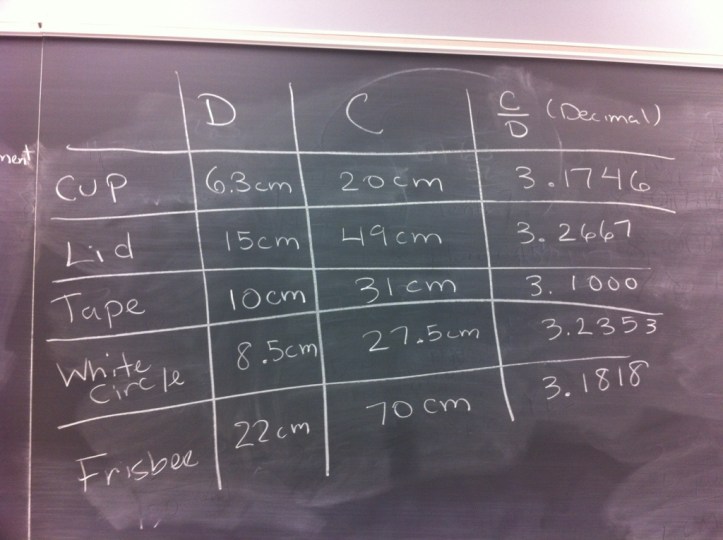 D C C/D (Decimal)
ment
CUP 6.3cm 20cm 3.1746
Lid 15cm 49cm 3.2667
Tape 10cm 31cm 3.1000
White Circle 8.5cm 27.5cm 3.2353
Frisbee 22cm 70cm 3.1818